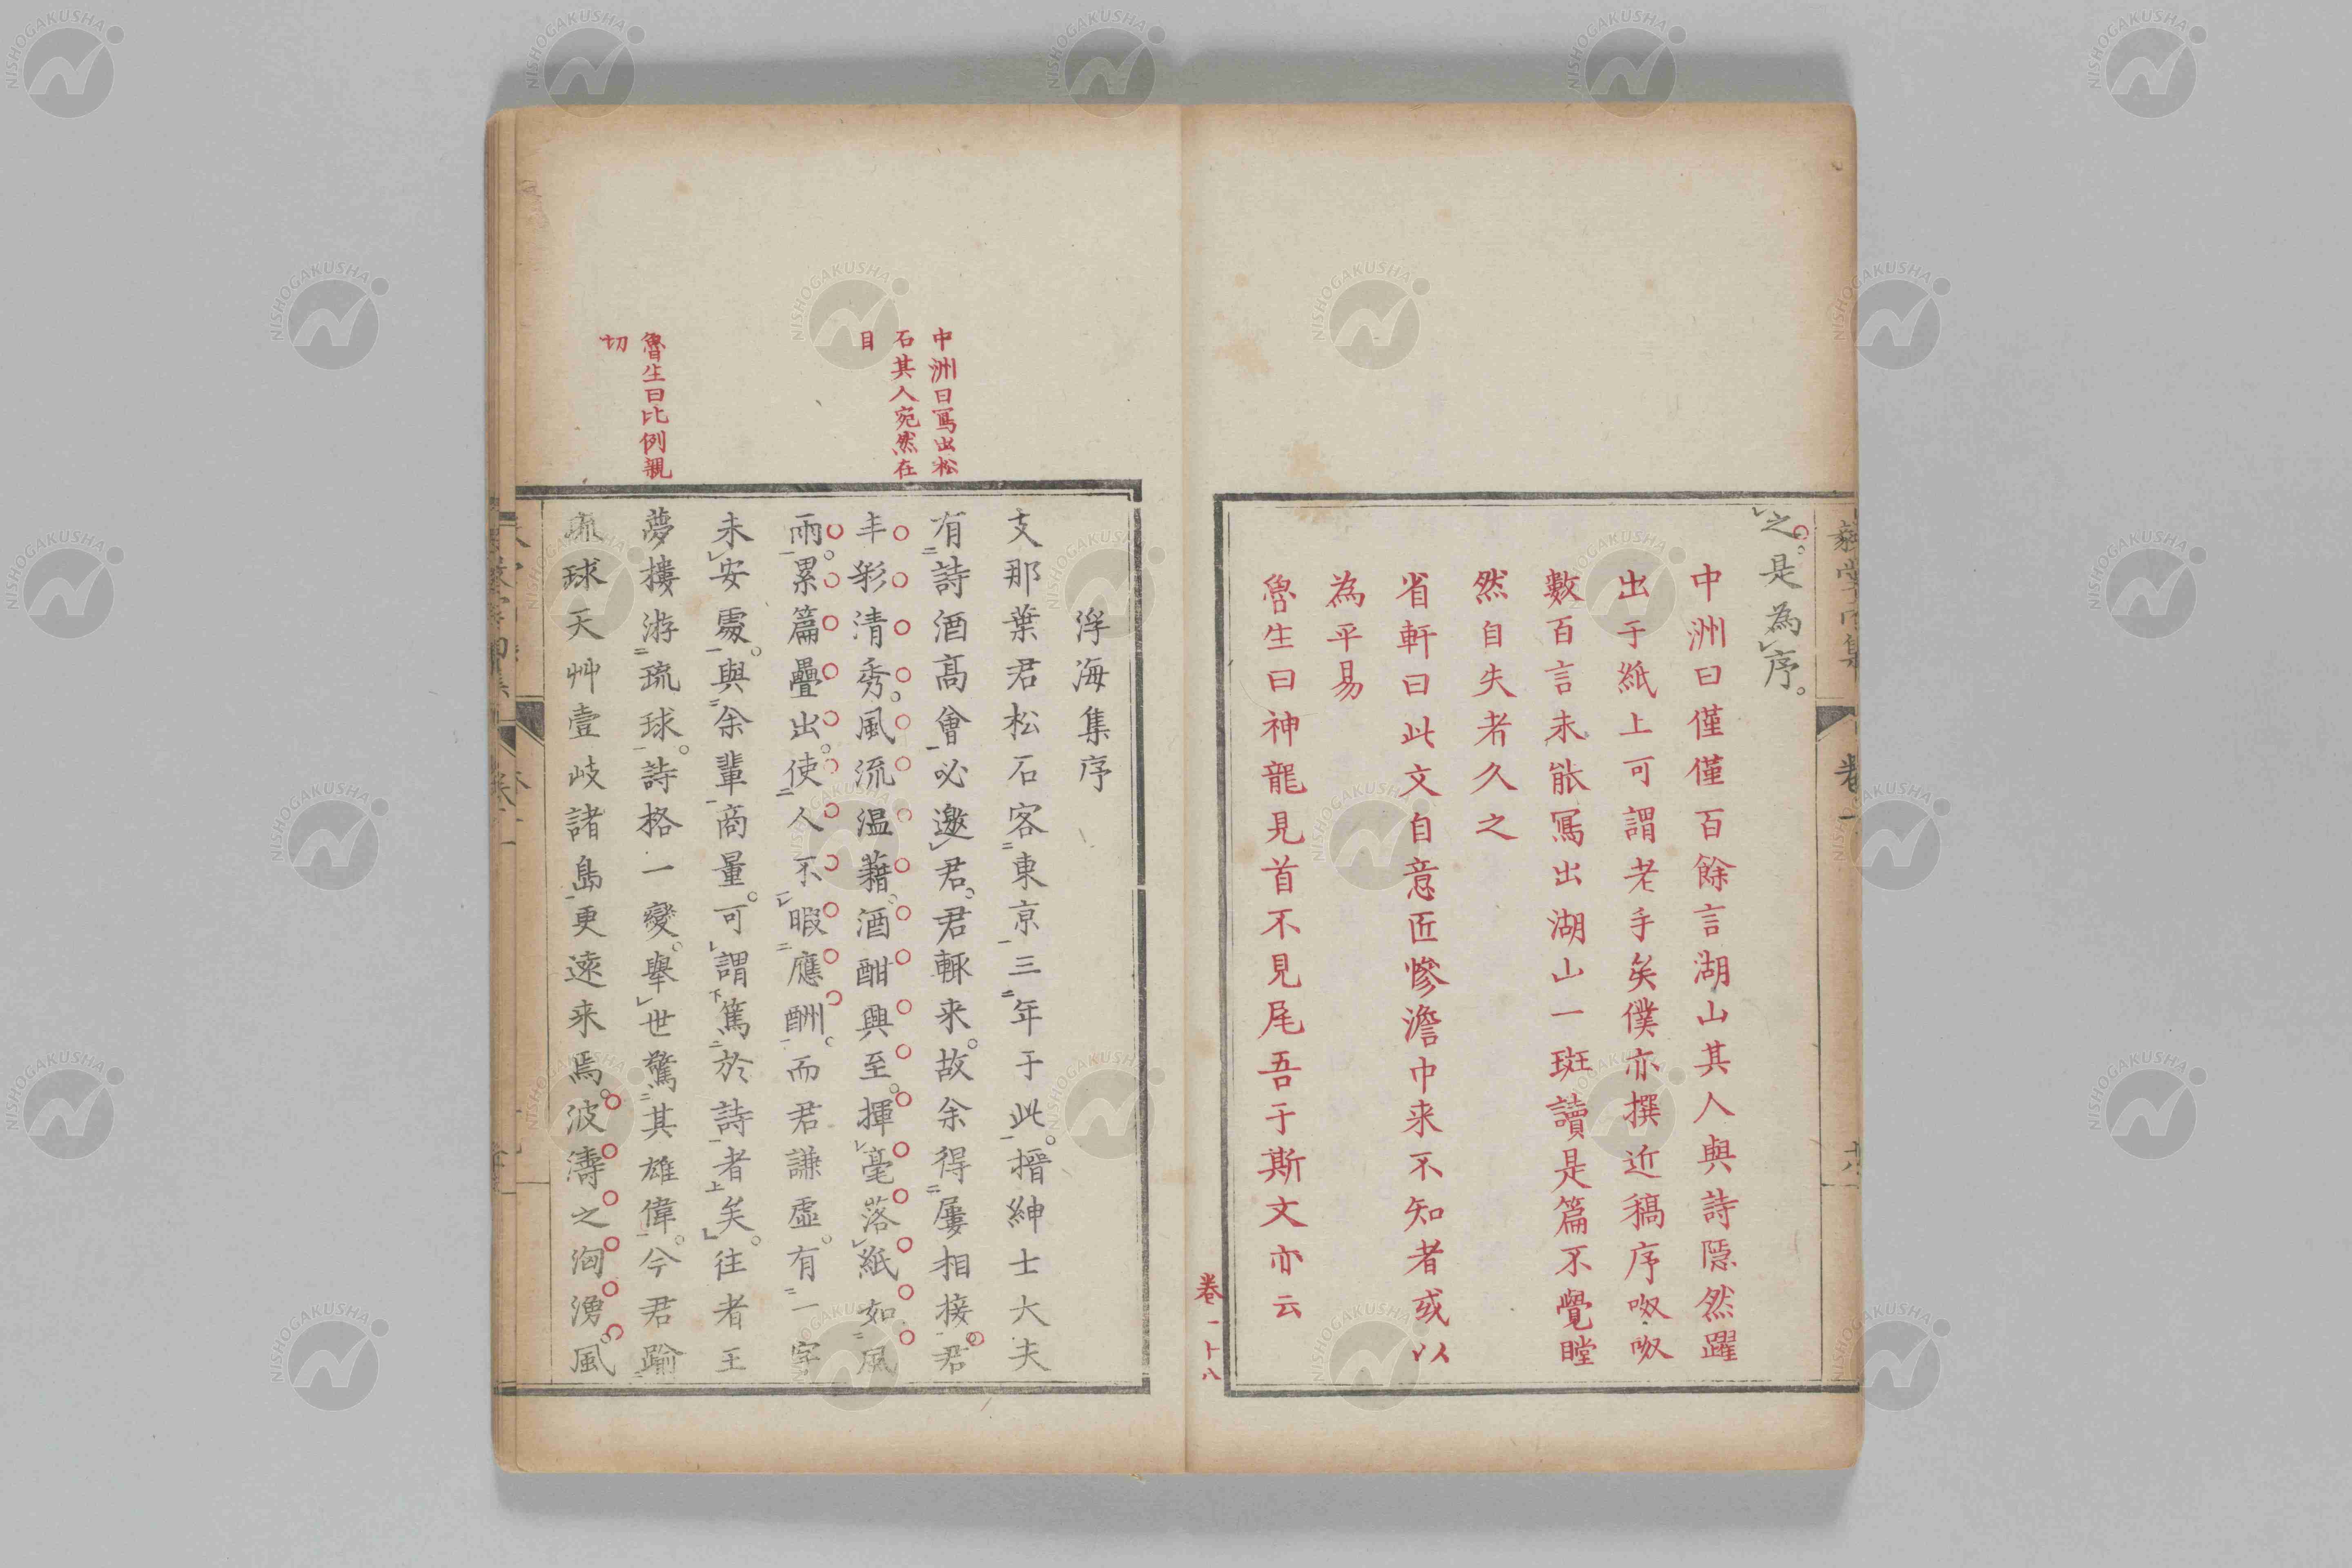 之是為序
中洲曰僅僅百餘言湖山其人與詩隱然躍
出于紙上可謂老手矣僕亦撰近稿序呶呶
數百言未能寫出湖山一斑讀是篇不覺瞠
然自失者久之
省軒曰此文自意匠慘澹中来不知者或以
為平易
魯生曰神龍見首不見尾吾于斯文亦云
卷一十八
中洲曰寫出松
石其人宛然在
目
魯生曰比例親
切
浮海集序
支那葉君松石客東京三年于此搢紳士大夫
有詩酒高會必邀君君輙来故余得屢相接君
丰彩清秀風流温藉酒酣興至揮毫落紙如風
雨累篇疊出使人不暇應酬而君謙虛有一字
未安處與余輩商量可謂篤於詩者矣往者王
夢樓游琉球詩格一變舉世驚其雄偉今君踰
琉球天艸壹岐諸島更遠来焉波濤之洶湧風
NISHOGAKUSHA